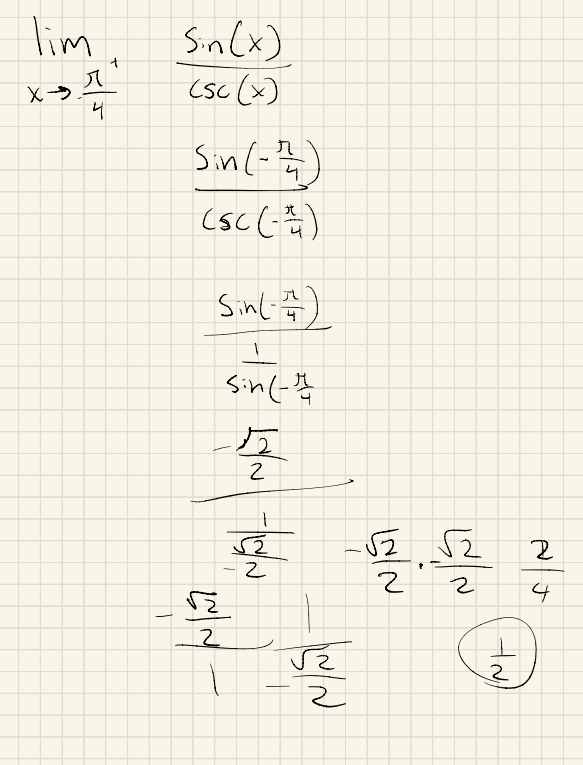 lim x→π/4⁺ sin(x)/csc(x)
sin(-π/4)/csc(-π/4)
sin(-π/4)/(1/sin(-π/4
(-√2/2)/(1/(-√2/2))
-√2/2 · -√2/2 2/4
(-√2/2)/1 1/(-√2/2)
1/2